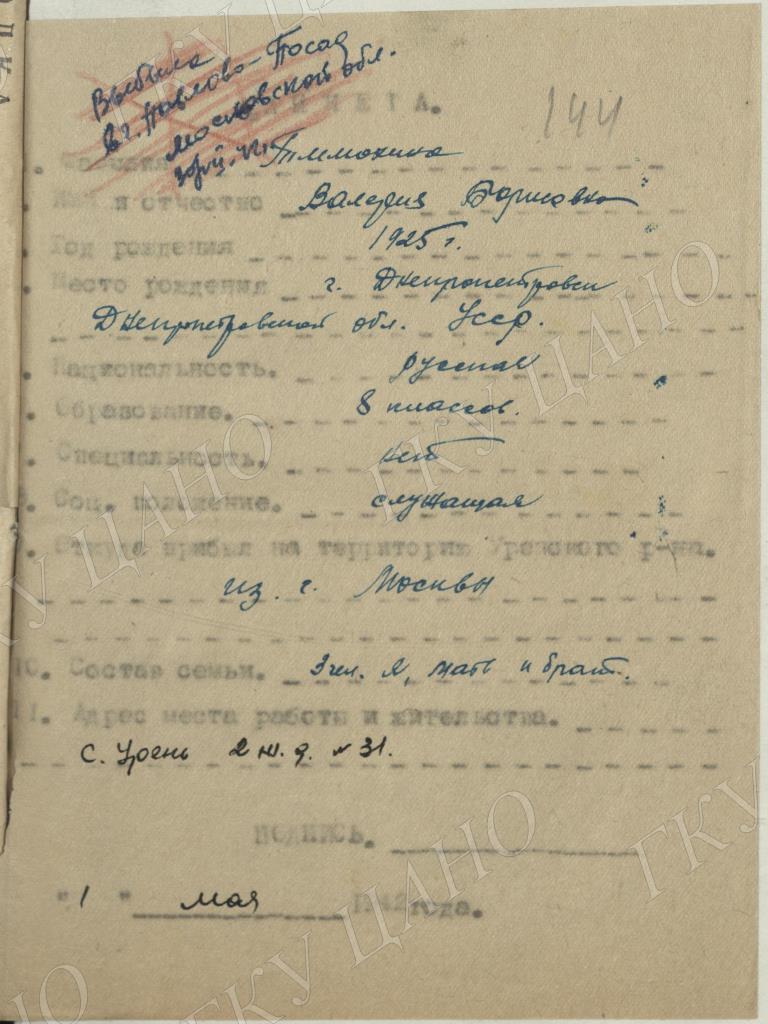 Выбыла
в г. Павлово-Посад
Московской обл.
АНКЕТА.
144
1. Фамилия Тимохина
2. Имя и отчество Валерия Борисовна
3. Год рождения 1925 г.
4. Место рождения г. Днепропетровск
Днепропетровской обл. УССР.
5. Национальность. русская
6. Образование. 8 классов.
7. Специальность. нет
8. Соц. положение. служащая
9. Откуда прибыл на территорию Уренского р-на.
из г. Москвы
10. Состав семьи. 3 чел. Я, мать и брат.
11. Адрес места работы и жительства.
С. Урень 2 ж. д. № 31.
ПОДПИСЬ.
"1" мая 1942 года.
ГКУ ЦАНО